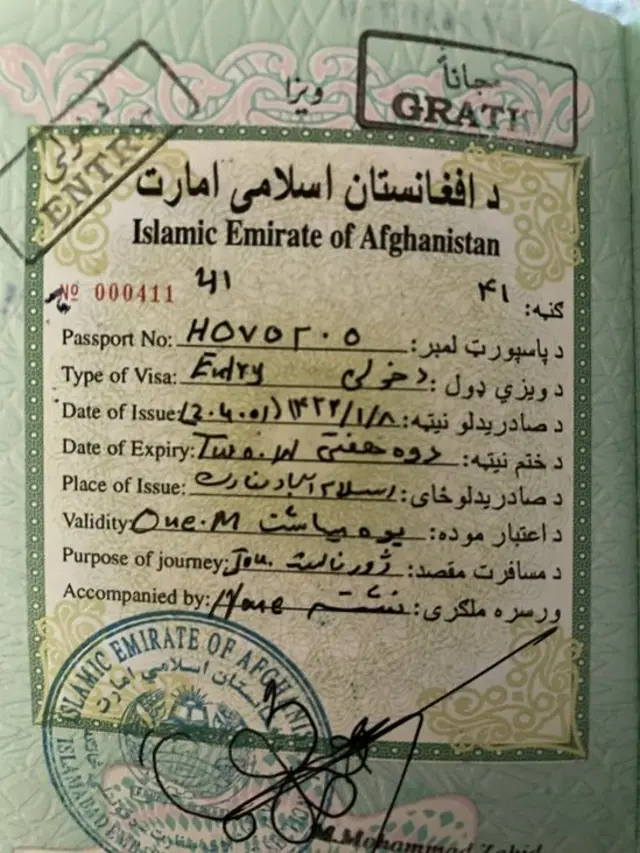 ویزا
مجاناً
GRATI
دخولی
ENTRY
د افغانستان اسلامی امارت
Islamic Emirate of Afghanistan
№ 000411 41 ۴۱ ګڼه:
Passport No: د پاسپورټ لمبر:
Type of Visa: Entry دخولی د ویزي ډول:
Date of Issue: (2.4.01) ۱۴۲۲/۱/۸ د صادریدلو نیټه:
Date of Expiry: Two.w دوه هفتې د ختم نیټه:
Place of Issue: اسلام آباد سفارت د صادریدلو ځای:
Validity: One.M یوه میاشت د اعتبار موده:
Purpose of journey: Jou. ژورنالست د مسافرت مقصد:
Accompanied by: None نشته ورسره ملګری:
ISLAMIC EMIRATE OF AFGHANI
افغانستان اسلامی امارت
ISLAMABAD
M. Mohammad Zahid